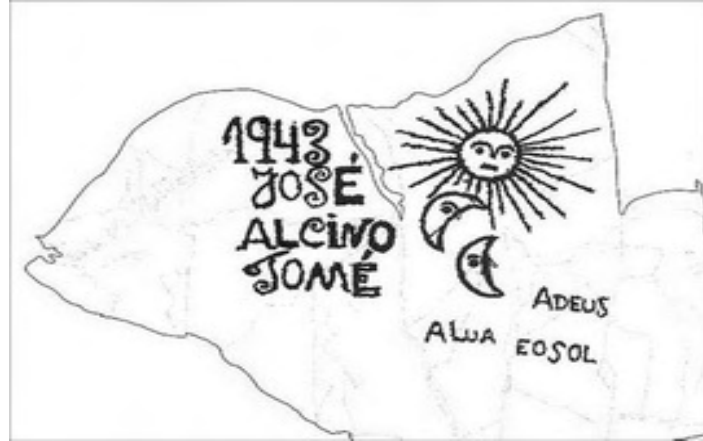 1943
JOSÉ
ALCINO
TOMÉ
ADEUS
A LUA EO SOL